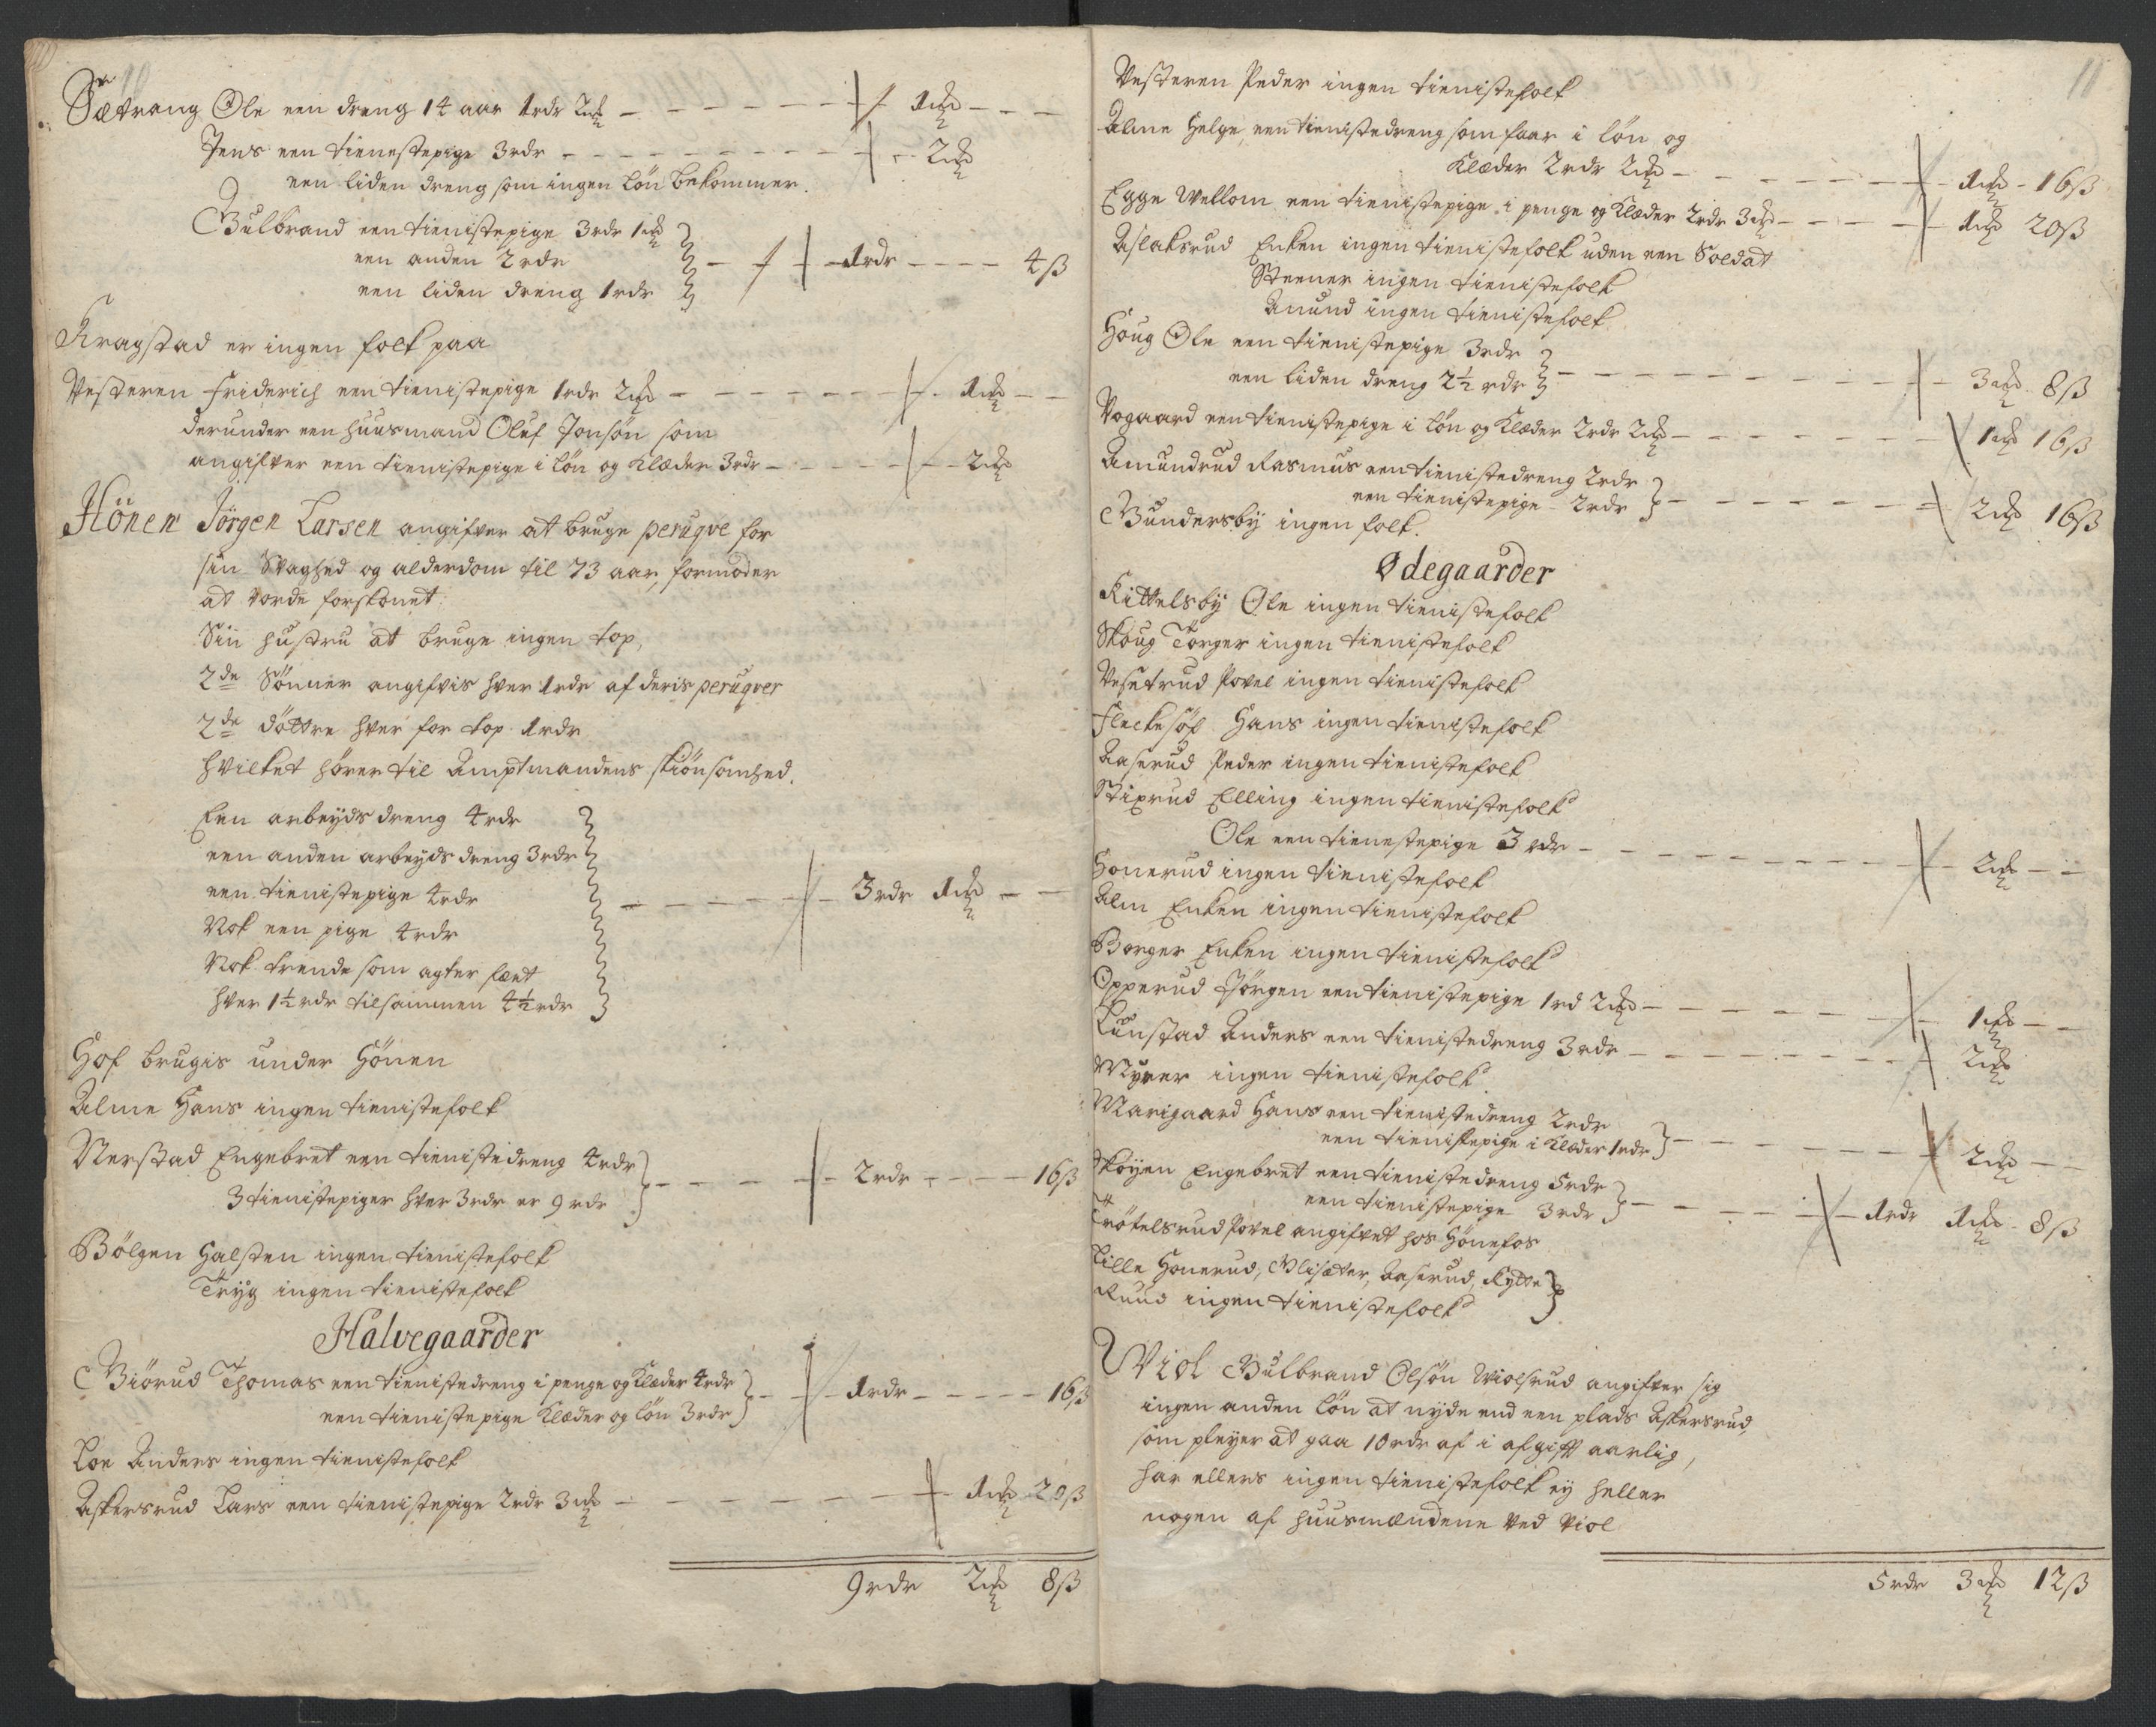 Sætrang Ole een dreng 14 aar 1 rdr 2 mk — 1 mk —
Jens een tienestepige 3 rdr — 2 mk
een liden dreng som ingen løn bekommer.
Gulbrand een tienistepige 3 rdr 1 mk
een anden 2 rdr — 1 rdr — 4 ß
een liden dreng 1 rdr
Kragstad er ingen folk paa
Vesteren Friderich een tienistepige 1 rdr 2 mk — 1 mk —
derunder een huusmand Oluf Jonsøn som
angifver een tienistepige i løn og klæder 3 rdr — 2 mk
Hönen Jörgen Larsen angifver at bruge peruqve for
sin Svaghed og alderdom til 73 aar, formoder
at vorde forskonet.
Sin hustru at bruge ingen top,
2de Sönner angifvis hver 1 rdr af deris peruqver
2de döttre hver for top 1 rdr
hvilket hører til Amptmandens skiönsomhed.
Een arbeyds dreng 4 rdr
een anden arbeyds dreng 3 rdr
een tienistepige 4 rdr — 3 rdr 1 mk —
Nok een pige 4 rdr
Nok trende som agter fæet
hver 1½ rdr tilsammen 4½ rdr
Hof brugis under Hönen
Alme Hans ingen tienistefolk
Nerstad Engebret een tienistedreng 4 rdr
3 tienistepiger hver 3 rdr er 9 rdr — 2 rdr — 16 ß
Bölgen Halsten ingen tienistefolk
Tryg ingen tienistefolk
Halvegaarder
Giörud Thomas een tienistedreng i penge og klæder 4 rdr
een tienistepige klæder og løn 3 rdr — 1 rdr — 16 ß
Loe Anders ingen tienistefolk
Askersrud Lars een tienistepige 2 rdr 3 mk — 1 mk 20 ß
9 rdr 2 mk 8 ß
11
Vesteren Peder ingen tienistefolk
Alme Helge, een tienistedreng som faar i løn og
klæder 2 rdr 2 mk — 1 mk 16 ß
Egge Wellom een tienistepige i penge og klæder 2 rdr 3 mk — 1 mk 20 ß
Aslaksrud Enken ingen tienistefolk uden een Soldat
Steener ingen tienistefolk
Amund ingen tienistefolk
Houg Ole een tienistepige 3 rdr
een liden dreng 2½ rdr — 3 mk 8 ß
Vogaard een tienistepige i løn og klæder 2 rdr 2 mk — 1 mk 16 ß
Amundrud Rasmus een tienistedreng 2 rdr
een tienistepige 2 rdr — 2 mk 16 ß
Gundersby ingen folk.
Ødegaarder
Kittelsby Ole ingen tienistefolk
Skoug Törger ingen tienistefolk
Vesetrud Povel ingen tienistefolk
Fleckesöf Hans ingen tienistefolk
Aaserud Peder ingen tienistefolk
Stixrud Elling ingen tienistefolk
Ole een tienestepige 3 rdr — 2 mk —
Honerud ingen tienistefolk
Alm Enken ingen tienistefolk
Borger Enken ingen tienistefolk
Opperud Jörgen een tienistepige 1 rd 2 mk — 1 mk —
Lunstad Anders een tienistedreng 3 rdr — 2 mk
Myrer ingen tienistefolk
Marigaard Hans een tienistedreng 2 rdr
een tienistepige i klæder 1 rdr — 2 mk —
Skøyen Engebret een tienistedreng 5 rdr
een tienistepige 3 rdr — 1 rdr 1 mk 8 ß
Trötelsrud Povel angifvet hos Hönefos
Lille Honerud, Blisæter, Aaserud, Rytte
Ruud ingen tienistefolk
Wiol Gulbrand Olsøn Wiolsrud angifver sig
ingen anden løn at nyde end een plads Askersrud,
som pleyer at gaa 10 rdr af i afgift aarlig,
har ellers ingen tienistefolk ey heller
nogen af huusmændene ved Viol
5 rdr 3 mk 12 ß